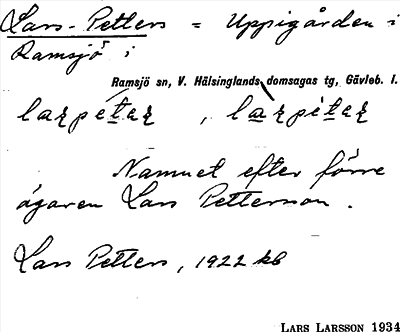 Lars-Petters = Uppigården i
Ramsjö i
Ramsjö sn, V. Hälsinglands domsagas tg, Gävleb. l.
larpetar , larpitar
Namnet efter förre
ägaren Lars Petterson .
Lars Petters, 1922 kb
LARS LARSSON 1934